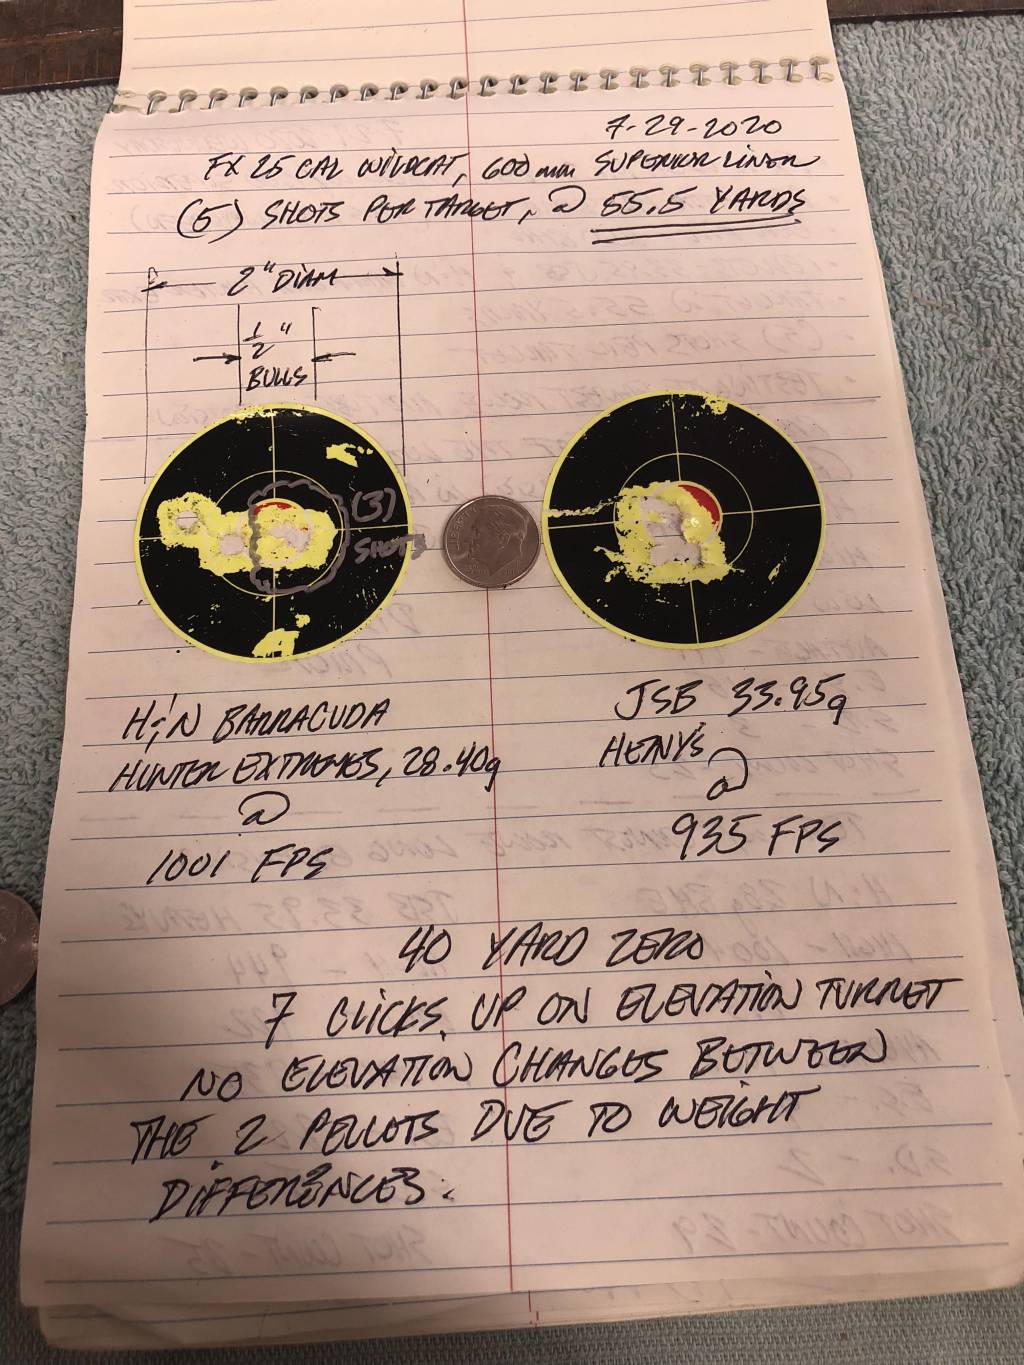 7-29-2020
FX 25 CAL WILDCAT, 600mm SUPERIOR LINER
(5) SHOTS PER TARGET, @ 55.5 YARDS
2" DIAM
1/2"
BULLS
(3)
SHOTS
LIBERTY
H&N BARRACUDA
HUNTER EXTREMES, 28.40g
@
1001 FPS
JSB 33.95g
HEAVY's
@
935 FPS
40 YARD ZERO
7 CLICKS UP ON ELEVATION TURRET
NO ELEVATION CHANGES BETWEEN
THE 2 PELLOTS DUE TO WEIGHT
DIFFERENCES.